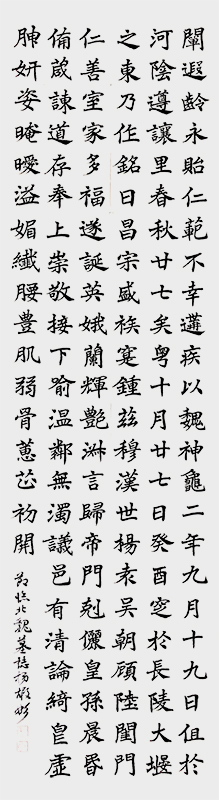 闡遐齡永貽仁範不幸遘疾以魏神龜二年九月十九日俎於
河陰遵讓里春秋廿七矣粵十月廿七日癸酉窆於長陵大堰
之東乃作銘曰昌宗盛族寔鍾茲穆漢世楊袁吳朝顧陸閨門
仁善室家多福遂誕英娥蘭輝艷淋言歸帝門剋儷皇孫晨昏
俻葴諫道存奉上崇敬接下喻温鄰無濁議邑有清論綺皃虛
腴妍姿晻曖溢媚纖腰豊肌弱骨蕙芯初開
節臨北魏墓誌楊